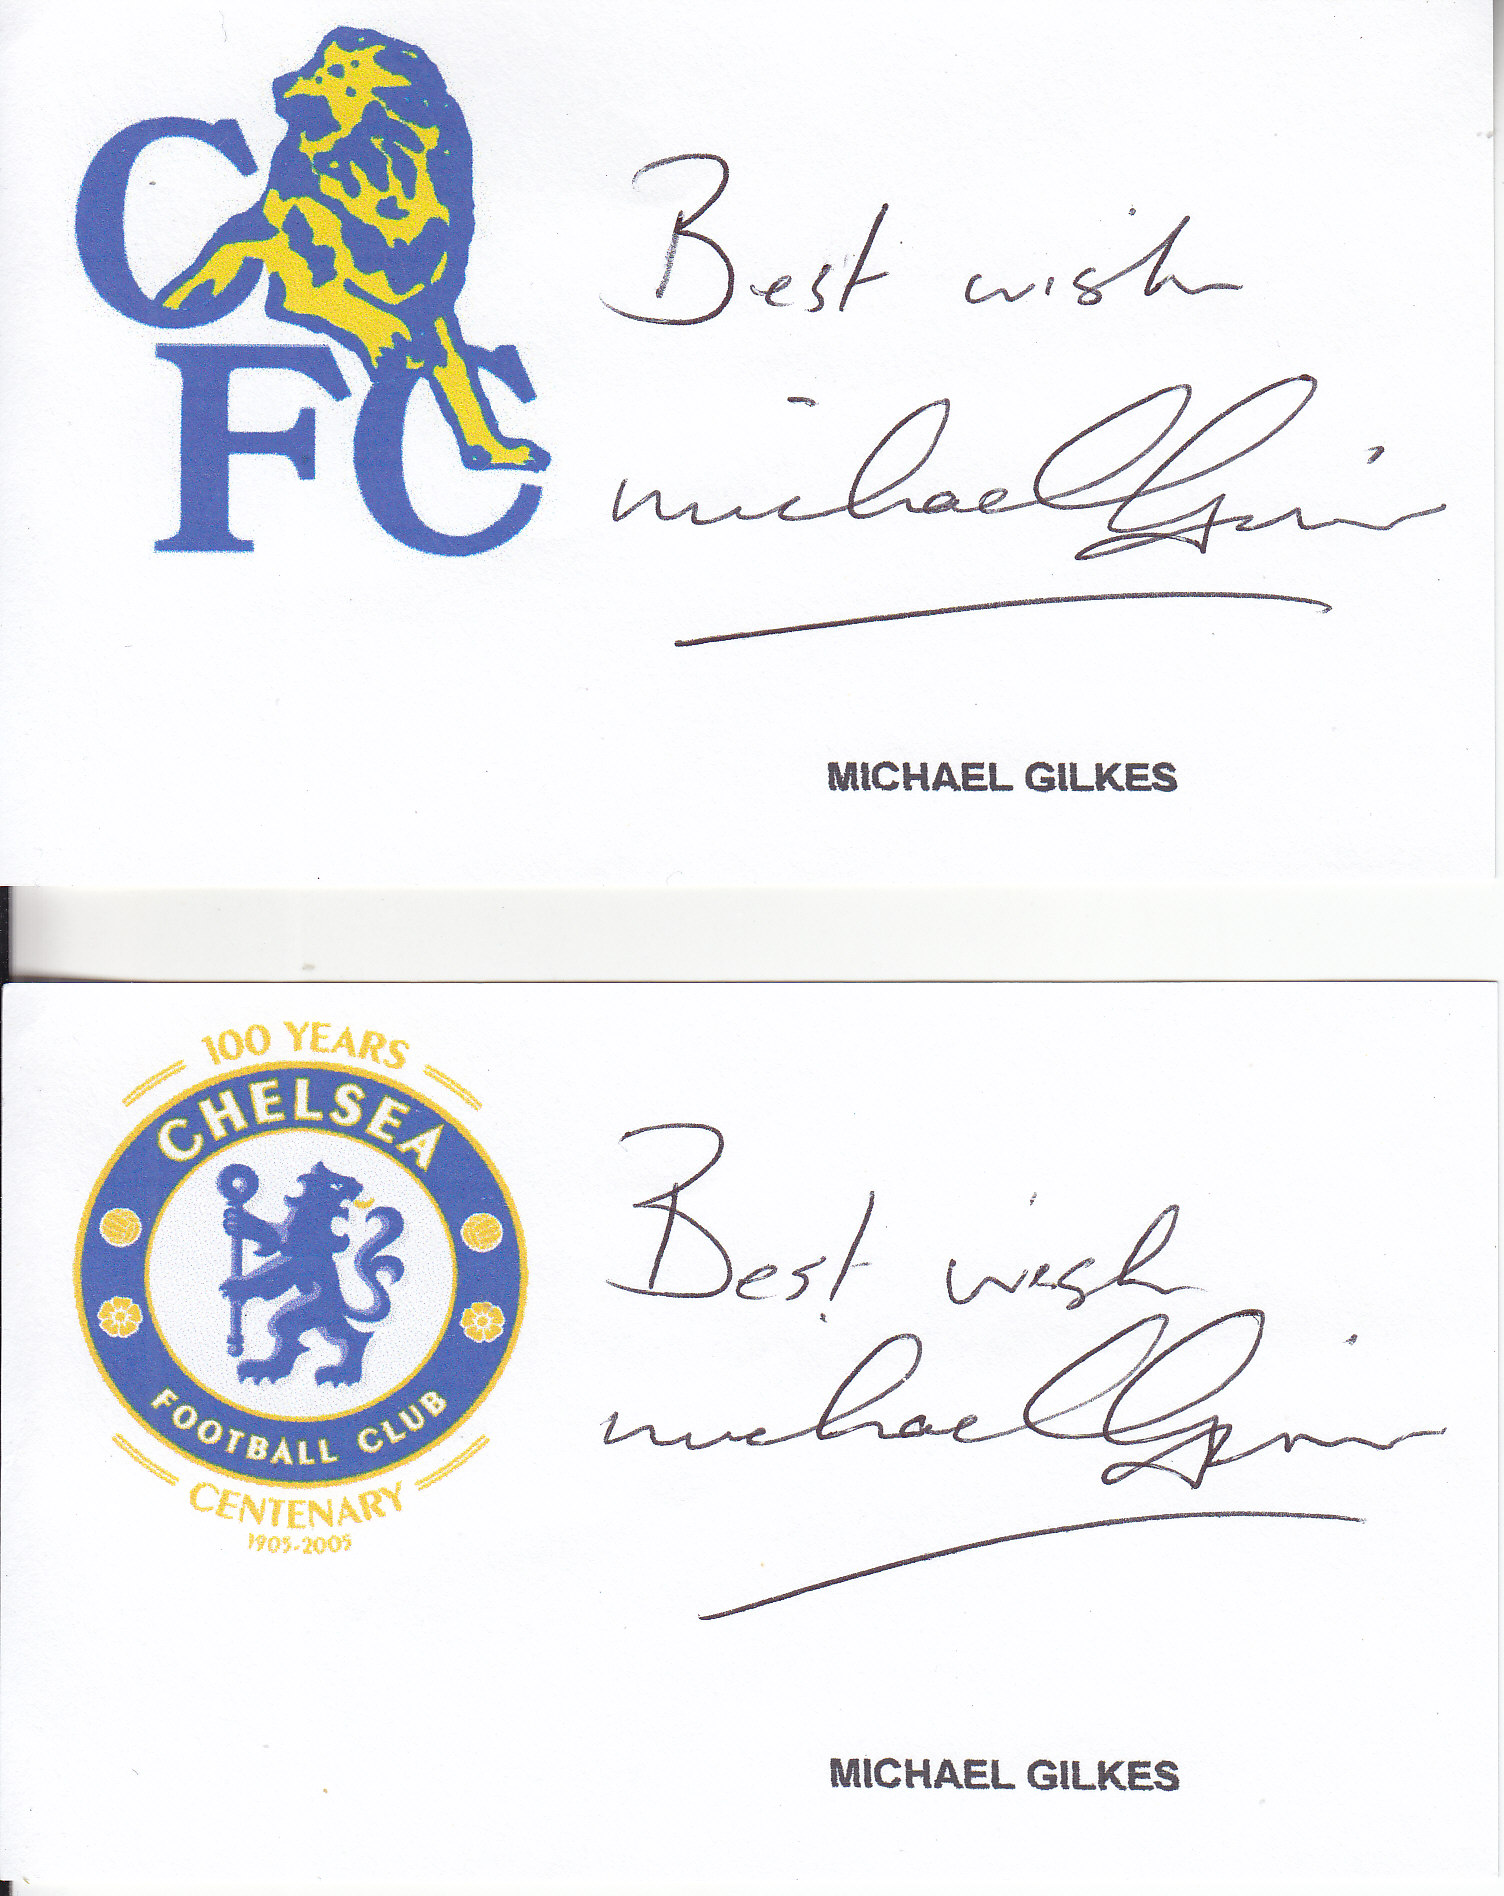 CFC
Best wish
michael Gilkes
MICHAEL GILKES
100 YEARS
CHELSEA
FOOTBALL CLUB
CENTENARY
1905-2005
Best wish
michael Gilkes
MICHAEL GILKES